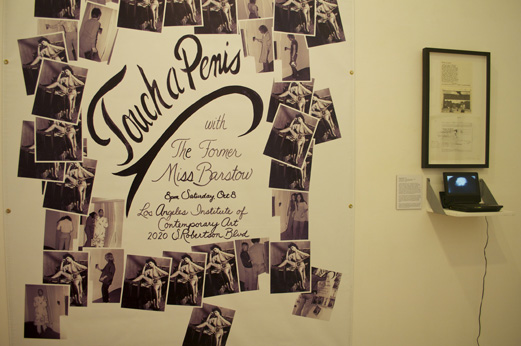 Touch a Penis
with
The Former
Miss Barstow
8pm Saturday Oct 8
Los Angeles Institute of
Contemporary Art
2020 S. Robertson Blvd